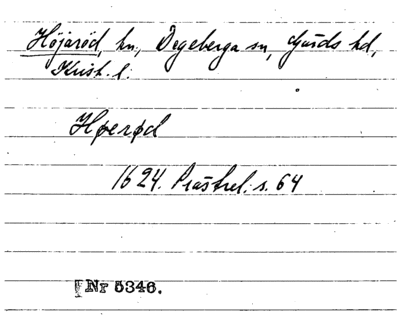 Höjaröd, hn, Degeberga sn, Gärds hd,
Krist. l.
Hørød
1624. Prästrel. s. 64
Nr 5346.